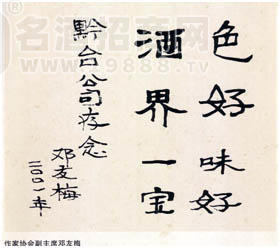 色好味好
酒界一宝
黔台公司存念
邓友梅
二〇〇一年
作家协会副主席邓友梅
名酒招商网
www.9888.tv